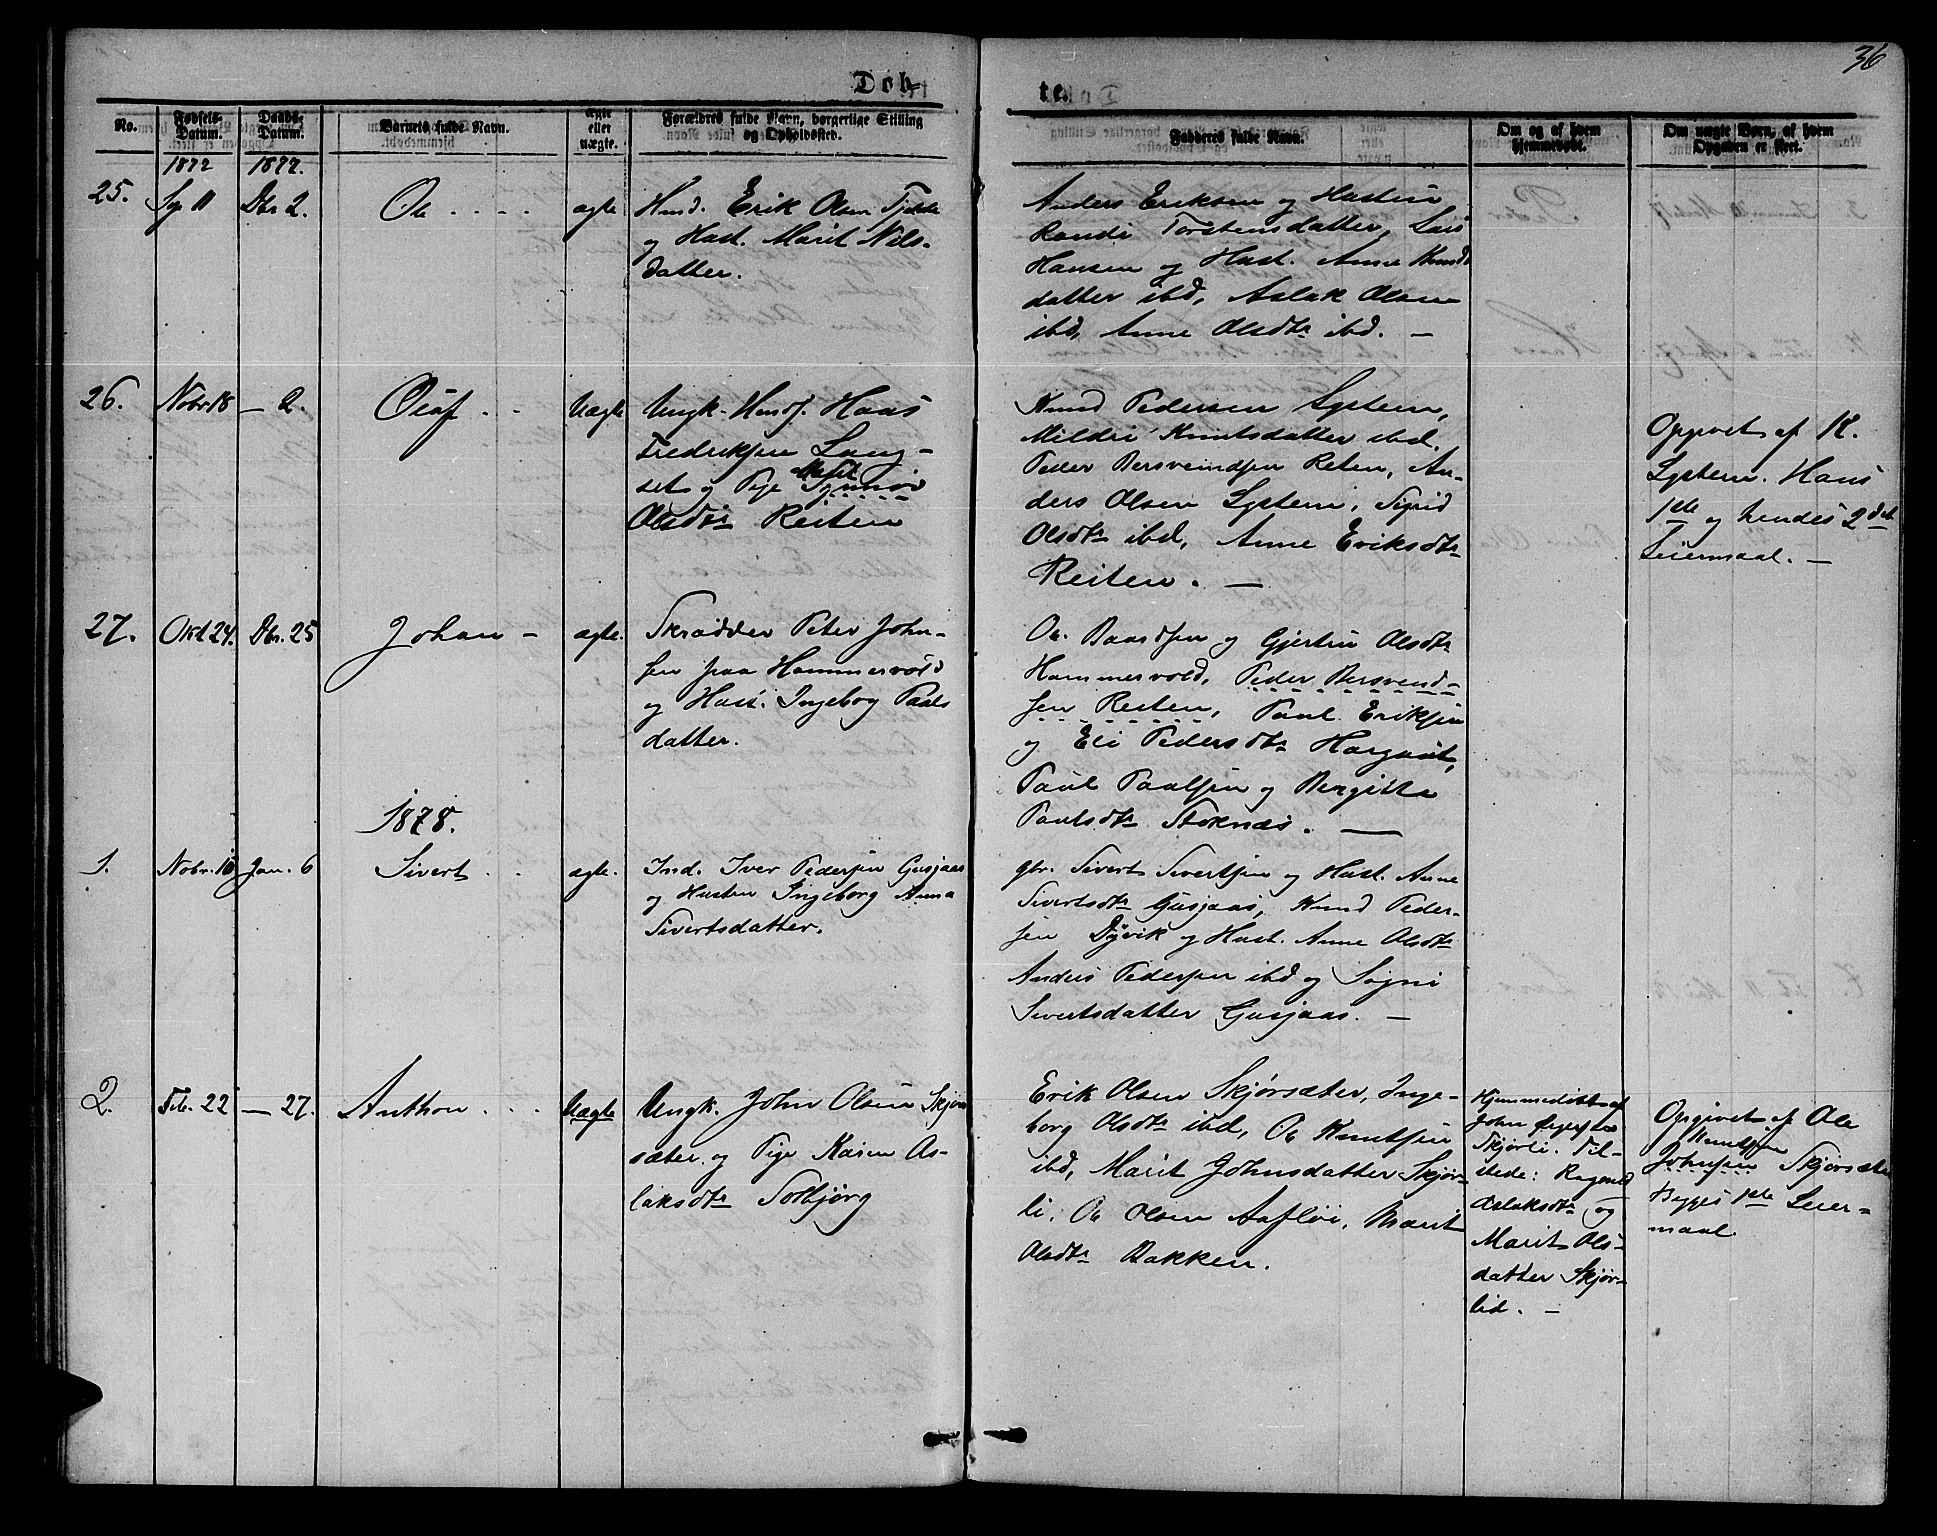 36
Døb-
te.
No.
Fødsels-
Datum.
Daabs-
Datum.
Barnets fulde Navn.
ægte
eller
uægte.
Forældres fulde Navn, borgerlige Stilling
og Opholdssted.
Faddernes fulde Navn.
Om og af hvem
hjemmedøbt.
Om uægte Børn, af hvem
Opgaven er skeet.
1877
1877.
25.
Sp. 11
Dbr 2.
Ole . . . .
ægte
Husd. Erik Olsen Tjelde
og Hust. Marit Nils-
datter.
Anders Eriksen og Hustru
Randi Torstensdatter, Lars
Hansen og Hust. Anne Knuds
datter ibd, Aslak Olsen
ibd, Anne Olsdtr ibd. —
26.
Nobr. 18
— 2.
Oluf . . .
Uægte
Ungk. Husdf. Hans
Fredriksen Lang-
set og Pige Synnøv
Marit
Olsdtr Reiten
Knud Pedersen System,
Mildri Knutsdatter ibd.
Peder Bersveindsen Reten, An-
ders Olsen Systemi, Sigrid
Olsdtr ibd, Anne Eriksdtr
Reiten. —
Opgivet af K.
System. Hans
1ste og hendes 2det
Leiermaal. —
27.
Okt 24.
Dbr. 25
Johan —
ægte.
Skrædder Peter John-
sen paa Hammervold
og Hust. Ingebog Paals
datter.
Ole Baardsen og Gjertru Olsdtr
Hammervold, Peder Bersvend-
sen Resten, Paul Eriksen
og Eli Pedersdtr Hargaut,
Paul Paalsen og Bergitte
Paulsdtr Stoknæs. —
1878.
1.
Nobr. 18
Jan. 6
Sivert . .
ægte.
Ind. Iver Pedersen Gusjaas
og Husten Ingeborg Anna
Sivertsdatter.
gbr. Sivert Sivertsen og Hust. Anne
Sivertsdtr Gusjaas, Knud Peder-
sen Dyvik og Hust. Anne Olsdtr
Anders Pedersen ibd og Signi
Sivertsdatter Gusjaas. —
2.
Feb. 22
— 27.
Anthon . . .
Uægte
Ungk. John Olsen Skjør
sæter og Pige Karen As-
laksdtr Solbjørg
Erik Olsen Skjørsæter, Inge-
borg Olsdtr ibd, Ole Knutsen
ibd, Marit Johnsdatter Skjør-
li. Ole Olsen Aafløi, Marit
Olsdtr Bakken.
Hjemmedøbt af
John
Skjørli. Til-
stede: Ragnild
Aslaksdtr og
Marit Ols-
datter Skjør-
lid. —
Opgivet af Ole
Knutsen
Johnsen Skjørsæter
Begges 1ste Leier-
maal.